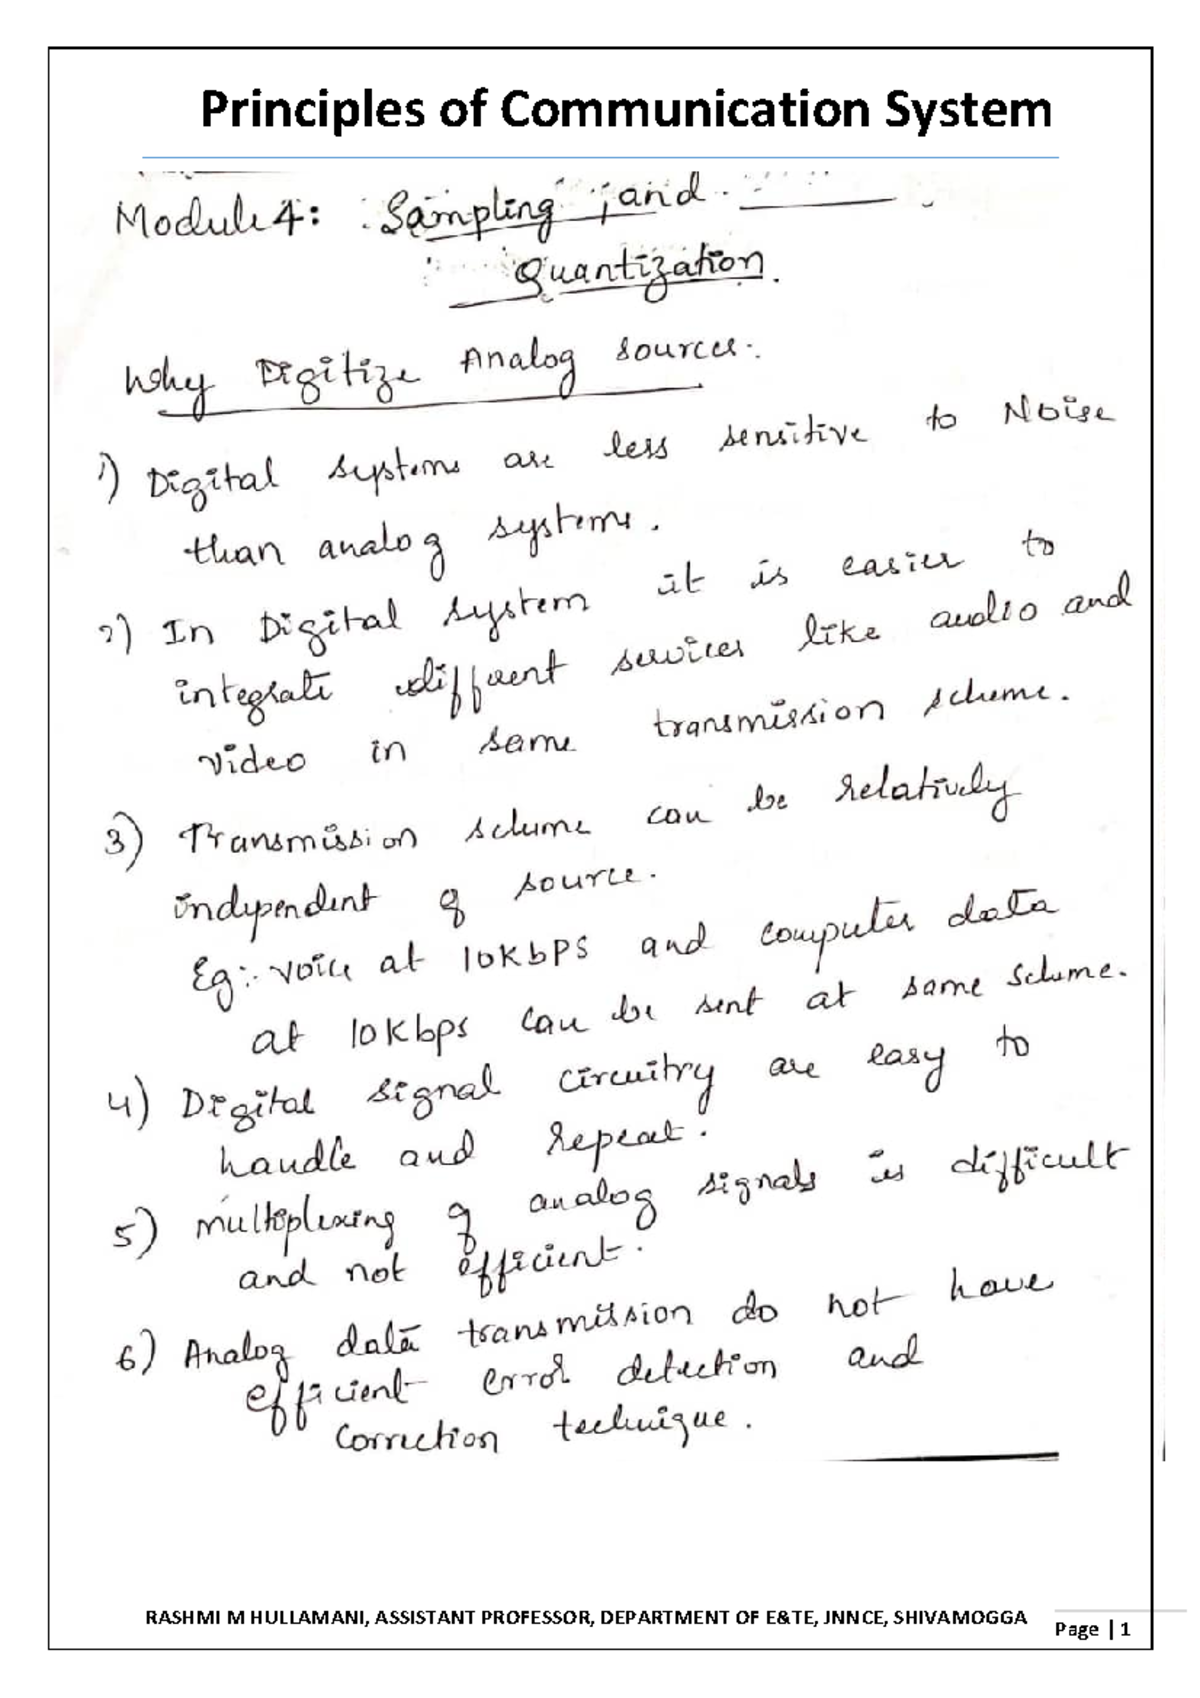 Principles of Communication System
Module 4: Sampling and
Quantization.
Why Digitize Analog Sources:-
1) Digital systems are less sensitive to Noise
than analog systems.
2) In Digital system it is easier to
integrate different services like audio and
video in same transmission scheme.
3) Transmission scheme can be relatively
independent of source.
Eg:- voice at 10KbPS and computer data
at 10Kbps can be sent at same scheme.
4) Digital signal circuitry are easy to
handle and repeat.
5) Multiplexing of analog signals is difficult
and not efficient.
6) Analog data transmission do not have
efficient error detection and
correction technique.
RASHMI M HULLAMANI, ASSISTANT PROFESSOR, DEPARTMENT OF E&TE, JNNCE, SHIVAMOGGA
Page | 1